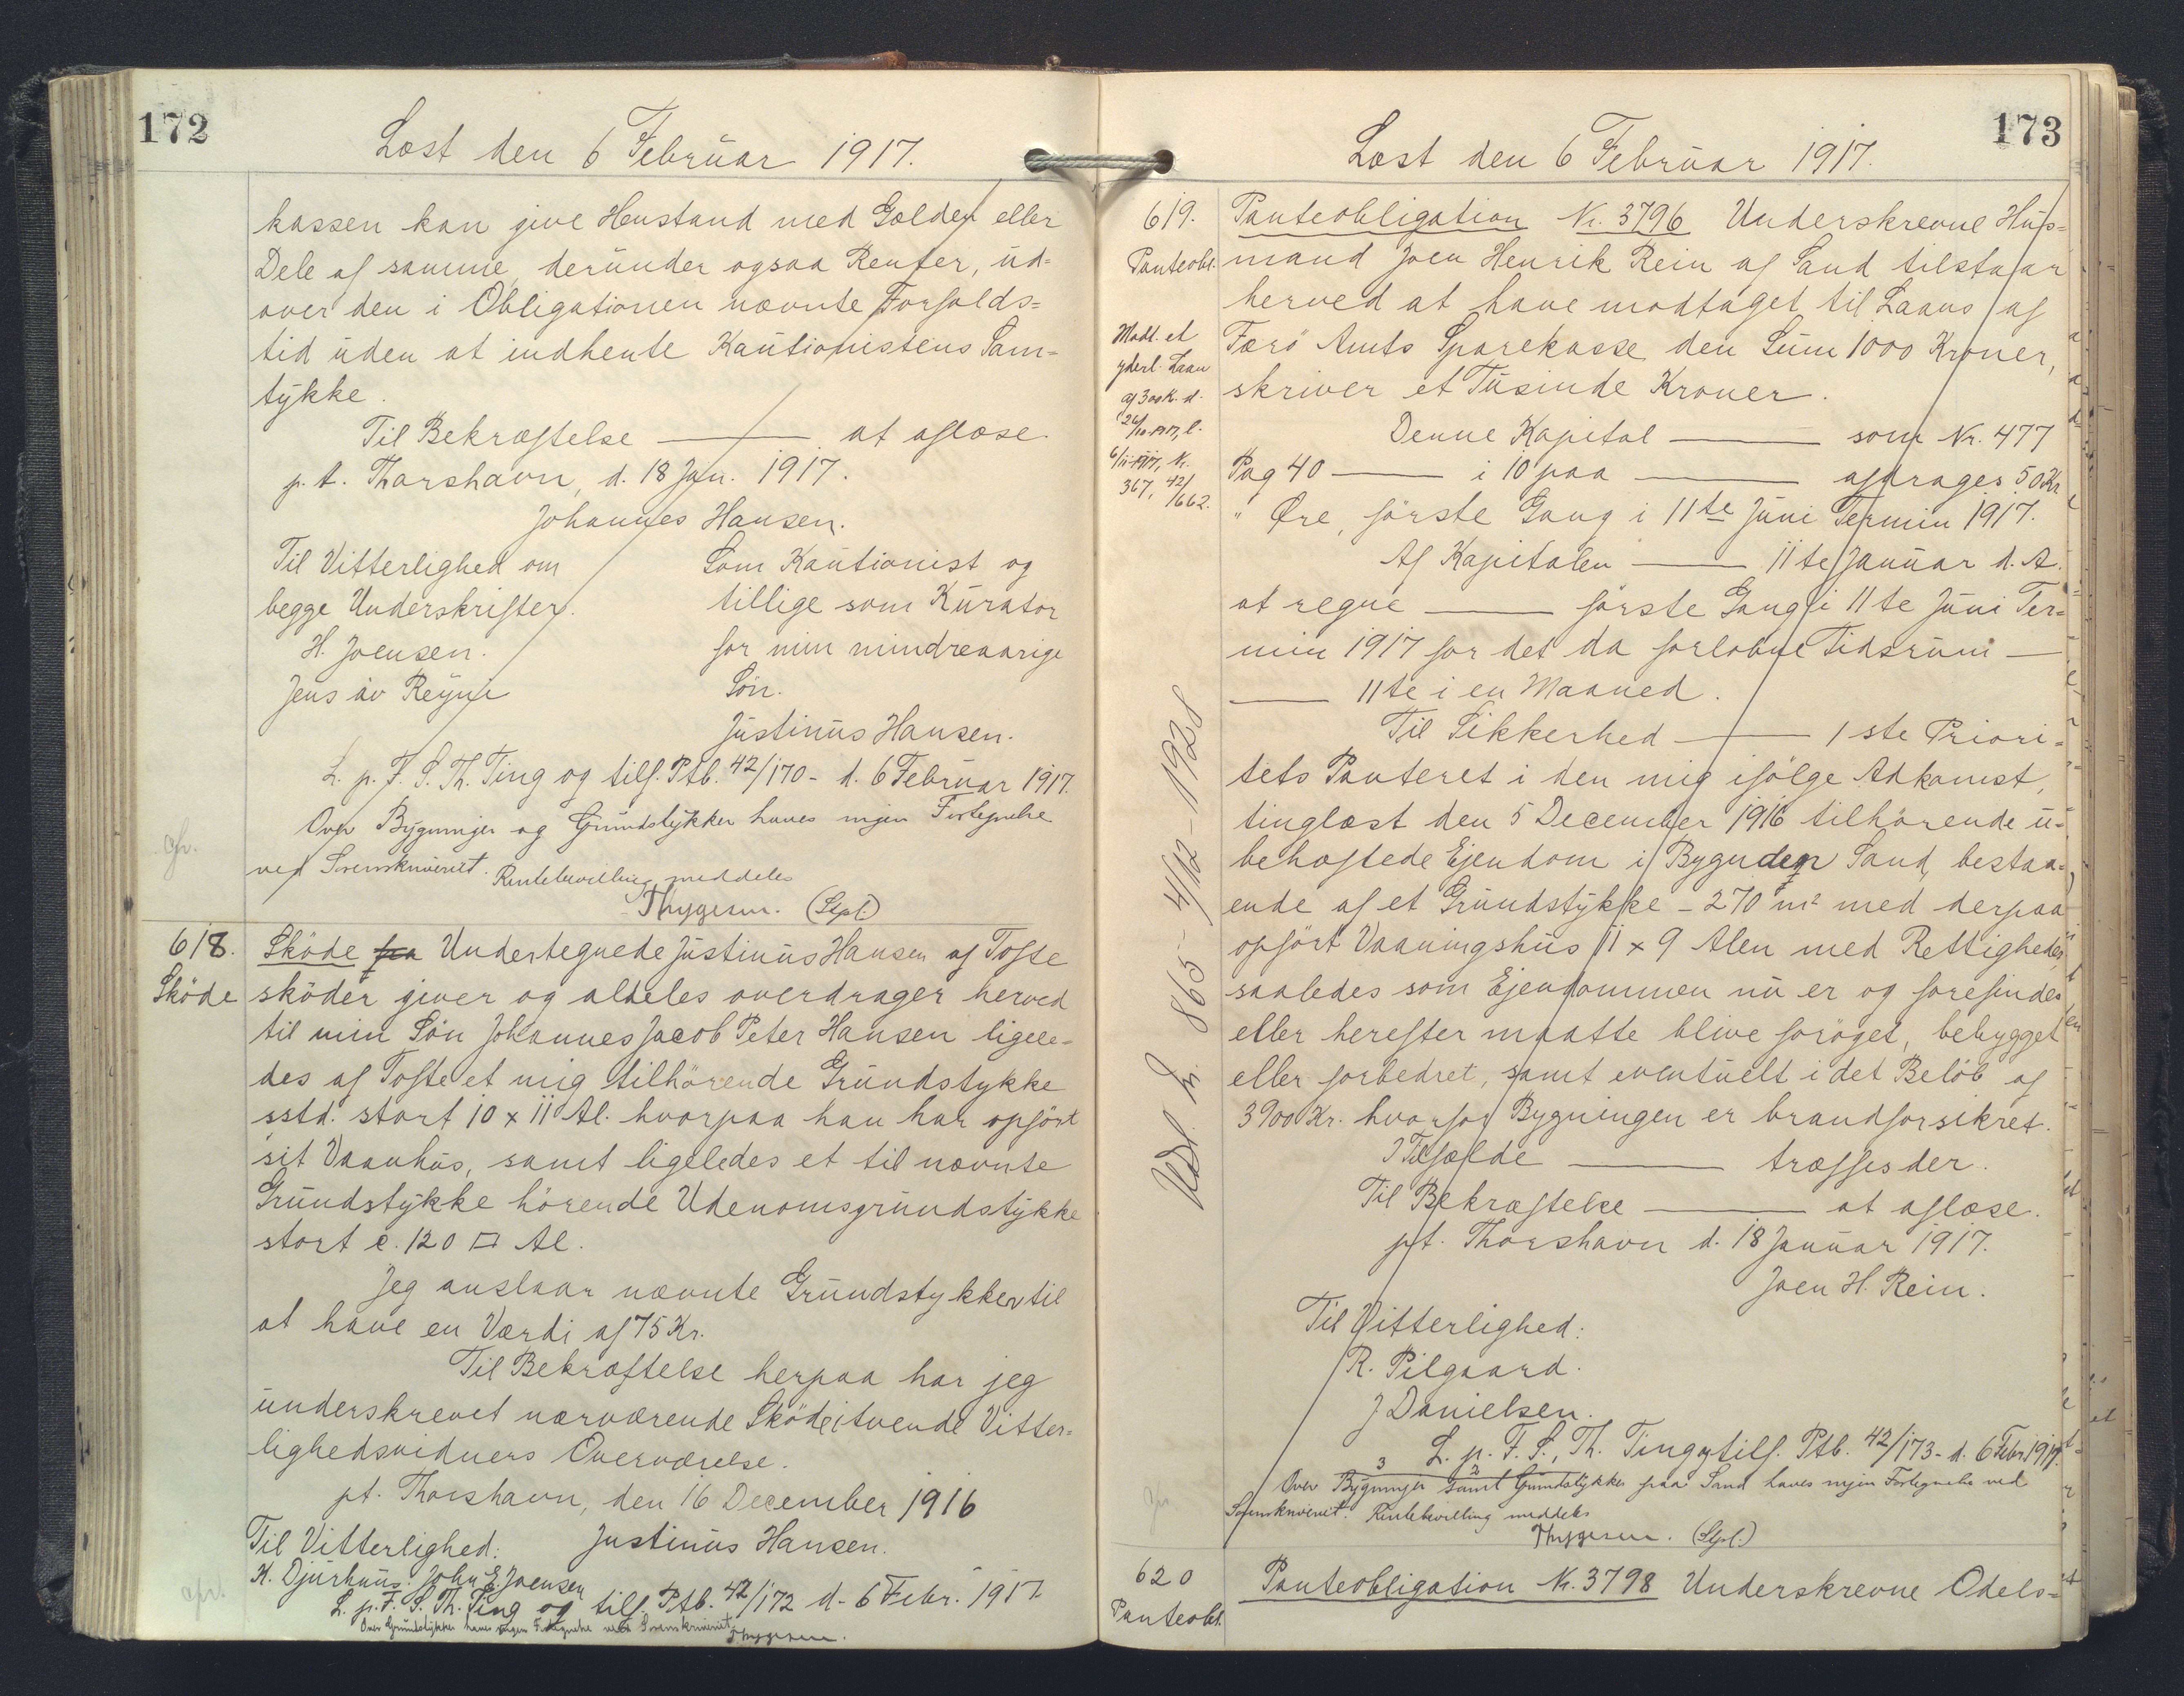 172
Læst den 6 Februar 1917.
kassen kan give Henstand med Gælden eller
Dele af samme, derunder ogsaa Renter, ud-
over den i Obligationen nævnte Forfalds-
tid uden at indhente Kautionistens Sam-
tykke.
Til Bekræftelse ——— at aflæse.
p.t. Thorshavn, d. 18 Jan. 1917.
Johannes Hansen.
Til Vitterlighed om
begge Underskrifter.
H. Joensen.
Jens av Reyni
Som Kautionist og
tillige som Kurator
for min mindreaarige
Søn.
Justinus Hansen.
L. p. F. S. Th. Ting og tilf. Ptb. 42/170 - d. 6 Februar 1917.
Over Bygninger og Grundstykker haves ingen Fortegnelse
ved Sorenskriveriet. Rentebevilling meddeles
Thygesen. (Stpl.)
618.
Sköde
Sköde fra Undertegnede Justinus Hansen af Tofte
sköder giver og aldeles overdrager herved
til min Søn Johannes Jacob Peter Hansen ligele-
des af Tofte et mig tilhörende Grundstykke
sstd. stort 10 x 11 Al. hvorpaa han har opfört
sit Vaanhus, samt ligeledes et til nævnte
Grundstykke hörende Udenomsgrundstykke
stort c. 120 □ Al.
Jeg anslaar nævnte Grundstykker til
at have en Værdi af 75 Kr.
Til Bekræftelse herpaa har jeg
underskrevet nærværende Sköde i tvende Vitter-
lighedsvidners Overværelse.
pt. Thorshavn, den 16 December 1916
Til Vitterlighed: Justinus Hansen.
K. Djurhuus. John E. Joensen
L. p. F. S. Th. Ting og tilf. Ptb. 42/172 d. 6 Febr. 1917.
Over Grundstykker haves ingen Fortegnelse ved Sorenskriveriet.
Thygesen.
173
Læst den 6 Februar 1917.
619.
Panteobl.
Modt. et
yderl. Laan
af 300 K. d.
26/10-1917, l.
6/11-1917, Nr.
367, 42/
/662.
Udsl. Nr. 865 - 4/12-1928
Panteobligation Nr. 3796 Underskrevne Hus-
mand Joen Henrik Rein af Sand tilstaar
herved at have modtaget til Laans af
Færö Amts Sparekasse den Sum 1000 Kroner,
skriver et Tusinde Kroner.
Denne Kapital ——— som Nr. 477
Pag 40 ——— i 10 paa ——— afdrages 50 Kr
" Øre, förste Gang i 11te Juni Termin 1917.
Af Kapitalen ——— 11te Januar d. A.
at regne ——— förste Gang i 11te Juni Ter-
min 1917 for det da forløbne Tidsrum —
——— 11te i en Maaned.
Til Sikkerhed ——— 1ste Priori-
tets Panteret i den mig ifölge Adkomst,
tinglæst den 5 December 1916 tilhörende u-
behæftede Ejendom i Bygden Sand, bestaa-
ende af et Grundstykke - 270 m² med derpaa
opfört Vaaningshus 11 x 9 Alen med Rettigheder,
saaledes som Ejendommen nu er og forefindes
eller herefter maatte blive foröget, bebygget
eller forbedret, samt eventuelt i det Belöb af
3900 Kr. hvorfor Bygningen er brandforsikret.
I Tilfælde ——— træffes der.
Til Bekræftelse ——— at aflæse.
pt. Thorshavn d. 18 Januar 1917.
Joen H. Rein.
Til Vitterlighed:
R. Pilgaard.
J Danielsen.
L. p. F. S., Th. Ting og tilf. Ptb. 42/173 - d. 6 Febr. 1917.
3 2
Over Bygninger samt Grundstykker paa Sand haves ingen Fortegnelse ved
Sorenskriveriet. Rentebevilling meddeles
Thygesen. (Stpl.)
620
Panteobl.
Panteobligation Nr. 3798 Underskrevne Odels-